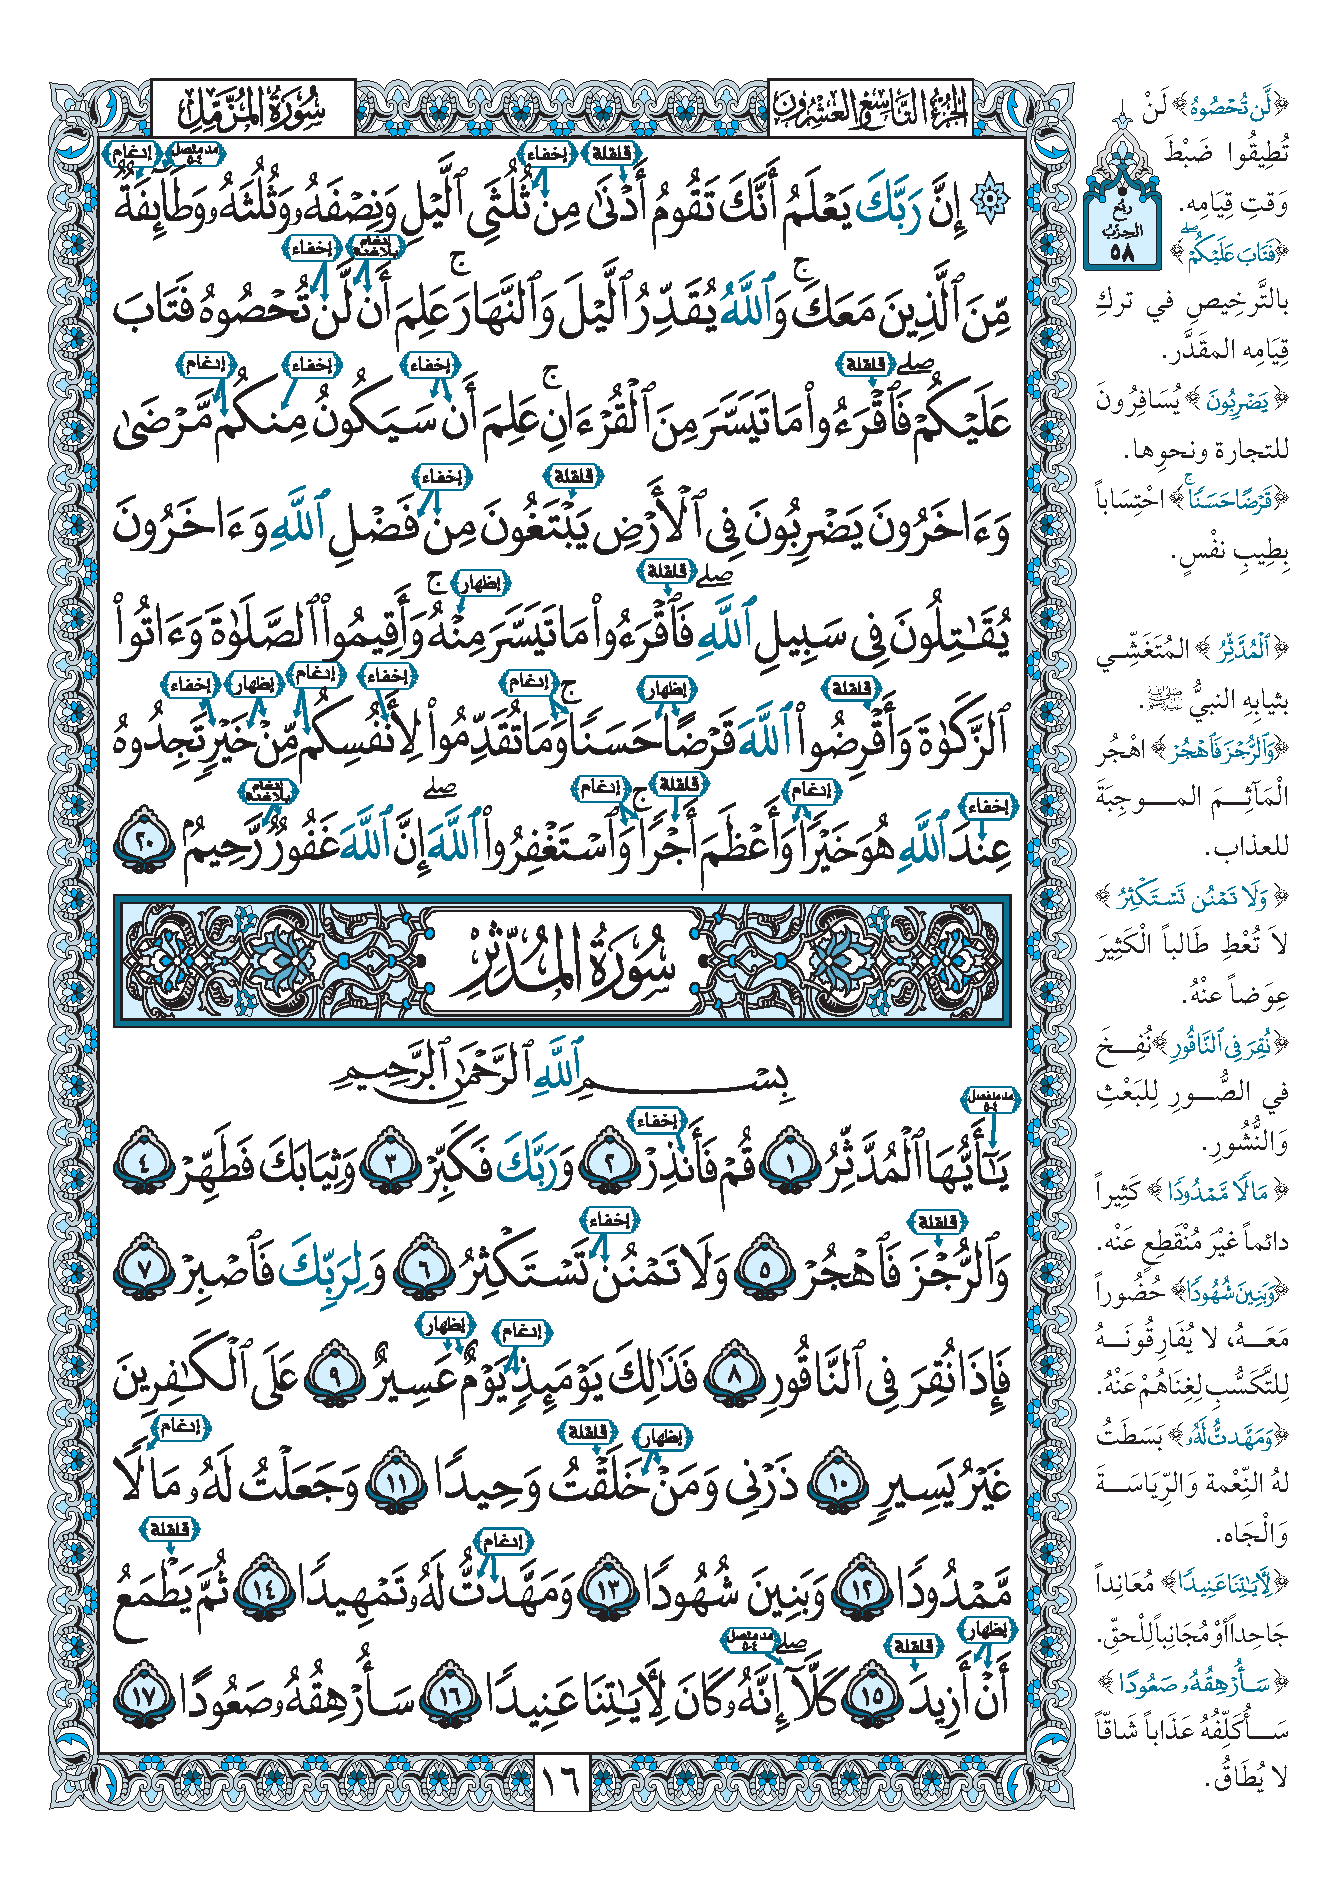 الجزء التاسع والعشرون
سورة المزمل
۞ إِنَّ رَبَّكَ يَعْلَمُ أَنَّكَ تَقُومُ أَدْنَىٰ مِن ثُلُثَيِ ٱلَّيْلِ وَنِصْفَهُۥ وَثُلُثَهُۥ وَطَآئِفَةٌ
مِّنَ ٱلَّذِينَ مَعَكَ ۚ وَٱللَّهُ يُقَدِّرُ ٱلَّيْلَ وَٱلنَّهَارَ ۚ عَلِمَ أَن لَّن تُحْصُوهُ فَتَابَ
عَلَيْكُمْ ۖ فَٱقْرَءُوا۟ مَا تَيَسَّرَ مِنَ ٱلْقُرْءَانِ ۚ عَلِمَ أَن سَيَكُونُ مِنكُم مَّرْضَىٰ
وَءَاخَرُونَ يَضْرِبُونَ فِى ٱلْأَرْضِ يَبْتَغُونَ مِن فَضْلِ ٱللَّهِ وَءَاخَرُونَ
يُقَٰتِلُونَ فِى سَبِيلِ ٱللَّهِ ۖ فَٱقْرَءُوا۟ مَا تَيَسَّرَ مِنْهُ ۚ وَأَقِيمُوا۟ ٱلصَّلَوٰةَ وَءَاتُوا۟
ٱلزَّكَوٰةَ وَأَقْرِضُوا۟ ٱللَّهَ قَرْضًا حَسَنًا ۚ وَمَا تُقَدِّمُوا۟ لِأَنفُسِكُم مِّنْ خَيْرٍ تَجِدُوهُ
عِندَ ٱللَّهِ هُوَ خَيْرًا وَأَعْظَمَ أَجْرًا ۚ وَٱسْتَغْفِرُوا۟ ٱللَّهَ ۖ إِنَّ ٱللَّهَ غَفُورٌ رَّحِيمٌۢ ٢٠
سورة المدثر
بِسْمِ ٱللَّهِ ٱلرَّحْمَٰنِ ٱلرَّحِيمِ
يَٰٓأَيُّهَا ٱلْمُدَّثِّرُ ١ قُمْ فَأَنذِرْ ٢ وَرَبَّكَ فَكَبِّرْ ٣ وَثِيَابَكَ فَطَهِّرْ ٤
وَٱلرُّجْزَ فَٱهْجُرْ ٥ وَلَا تَمْنُن تَسْتَكْثِرُ ٦ وَلِرَبِّكَ فَٱصْبِرْ ٧
فَإِذَا نُقِرَ فِى ٱلنَّاقُورِ ٨ فَذَٰلِكَ يَوْمَئِذٍ يَوْمٌ عَسِيرٌ ٩ عَلَى ٱلْكَٰفِرِينَ
غَيْرُ يَسِيرٍ ١٠ ذَرْنِى وَمَنْ خَلَقْتُ وَحِيدًا ١١ وَجَعَلْتُ لَهُۥ مَالًا
مَّمْدُودًا ١٢ وَبَنِينَ شُهُودًا ١٣ وَمَهَّدتُّ لَهُۥ تَمْهِيدًا ١٤ ثُمَّ يَطْمَعُ
أَنْ أَزِيدَ ١٥ كَلَّآ ۖ إِنَّهُۥ كَانَ لِءَايَٰتِنَا عَنِيدًا ١٦ سَأُرْهِقُهُۥ صَعُودًا ١٧
١٦
ربع
الحزب
٥٨
﴿لَّن تُحْصُوهُ﴾ لَنْ
تُطِيقُوا ضَبْطَ
وَقتِ قِيَامِه.
﴿فَتَابَ عَلَيْكُمْ ۖ﴾
بالتَّرخِيصِ في تركِ
قِيَامِه المقَدَّر.
﴿يَضْرِبُونَ﴾ يُسَافِرُونَ
للتجارة ونحوِها.
﴿قَرْضًا حَسَنًا ۚ﴾ احْتِسَاباً
بِطِيبِ نفْسٍ.
﴿ٱلْمُدَّثِّرُ﴾ المُتَغَشِّي
بثيابِهِ النبيُّ ﷺ.
﴿وَٱلرُّجْزَ فَٱهْجُرْ﴾ اهْجُر
الْمَآثِمَ الموجِبَةَ
للعذاب.
﴿وَلَا تَمْنُن تَسْتَكْثِرُ﴾
لَا تُعْطِ طَالباً الْكَثِيرَ
عِوَضاً عنْهُ.
﴿نُقِرَ فِى ٱلنَّاقُورِ﴾ نُفِخَ
في الصُّورِ لِلبَعْثِ
وَالنُّشُورِ.
﴿مَالًا مَّمْدُودًا﴾ كَثِيراً
دائماً غيْرَ مُنْقَطِعٍ عَنْه.
﴿وَبَنِينَ شُهُودًا﴾ حُضُوراً
مَعَهُ، لا يُفَارِقُونَهُ
لِلتَّكَسُّبِ لِغِنَاهُمْ عَنْهُ.
﴿وَمَهَّدتُّ لَهُۥ﴾ بَسَطَتُ
لهُ النِّعْمة وَالرِّيَاسَةَ
وَالْجَاه.
﴿لِءَايَٰتِنَا عَنِيدًا﴾ مُعَانِداً
جَاحِداً أوْ مُجَانِباً لِلْحقِّ.
﴿سَأُرْهِقُهُۥ صَعُودًا﴾
سَأُكَلِّفُهُ عَذَاباً شَاقّاً
لا يُطَاقُ.